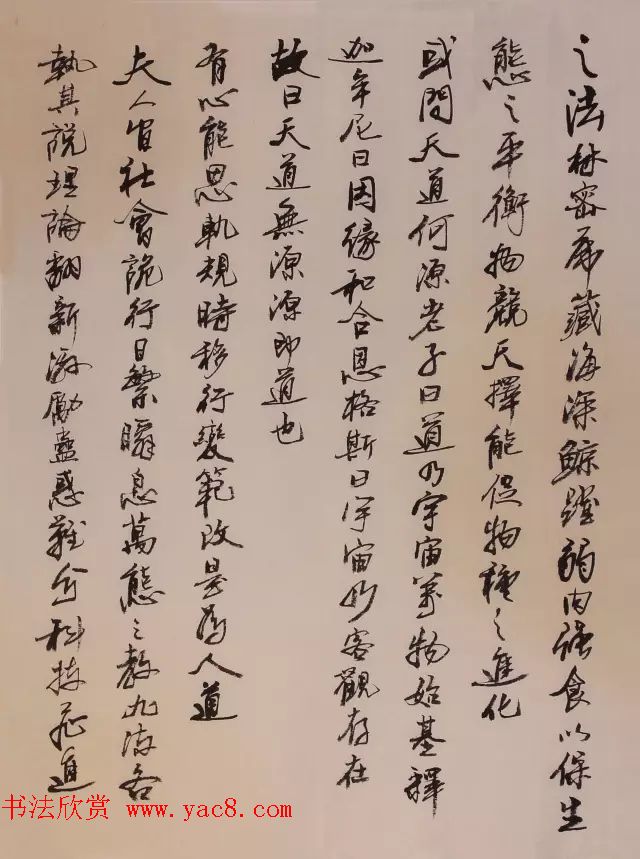 之法林密虎藏海深鲸跃弱肉强食以保生
態之平衡物競天擇能促物種之進化
或問天道何源老子曰道乃宇宙萬物始基釋
迦牟尼曰因緣和合恩格斯曰宇宙乃客觀存在
故曰天道無源源即道也
有心能思軌規時移行變範改是為人道
夫人皆社會詭行日繁瞬息萬態三教九流各
執其說理論翻新激勵蠱惑難分科技飛進
书法欣赏 www.yac8.com